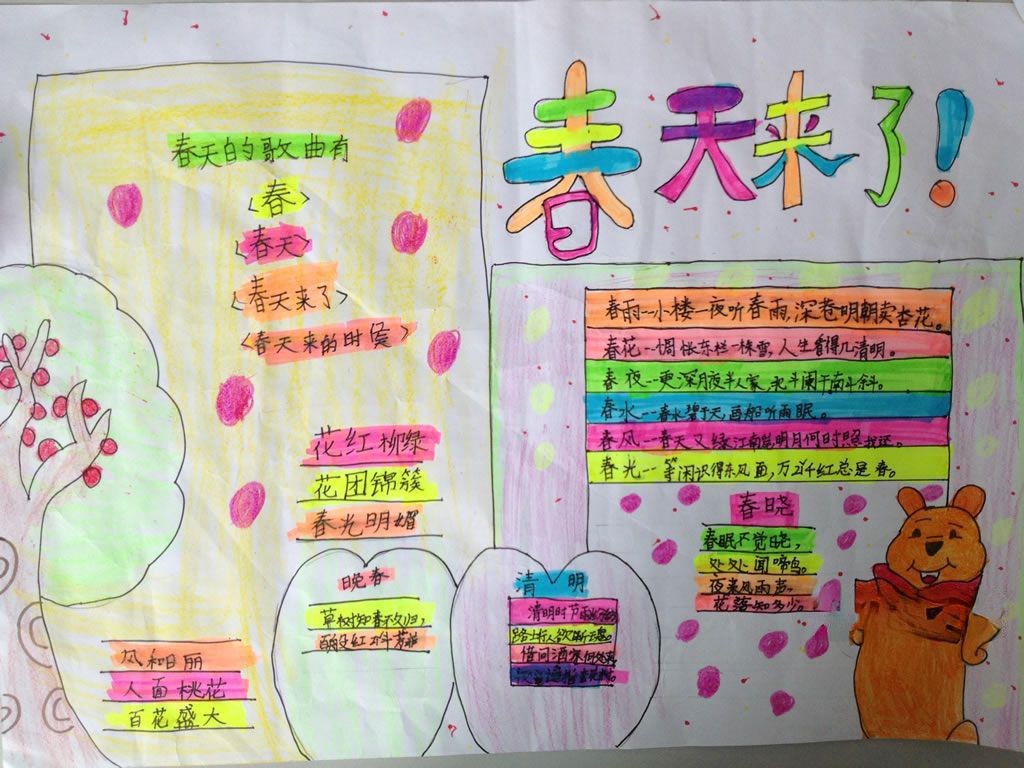 春天来了!
春天的歌曲有
<春>
<春天>
<春天来了>
<春天来的时侯>
花红柳绿
花团锦簇
春光明媚
风和日丽
人面桃花
百花盛大
晚春
草树知春不久归,
百般红
清明
清明时节雨
路上行人欲断
借问酒家何处
春雨--小楼一夜听春雨,深巷明朝卖杏花。
春花--惆怅东栏一株雪,人生看得几清明。
春夜--更深月夜半人家,北斗阑干南斗斜。
春水--春水碧于天,画船听雨眠。
春风--春天又绿江南岸,明月何时照我还。
春光--等闲识得东风面,万紫千红总是春。
春晓
春眠不觉晓,
处处闻啼鸟。
夜来风雨声,
花落知多少。